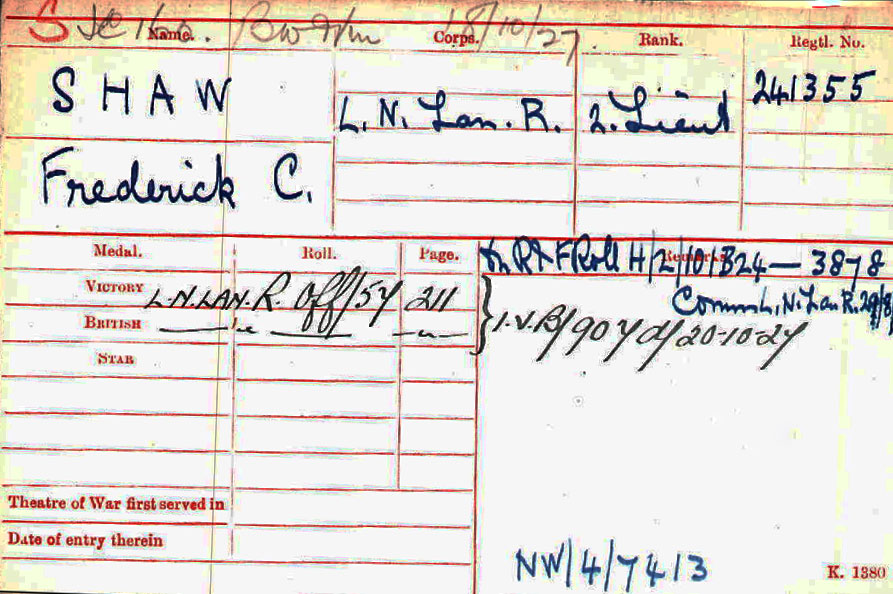 S
Name. Corps. Rank. Regtl. No.
18/10/27.
SHAW L. N. Lan. R. 2. Lieut 241355
Frederick C.
Medal. Roll. Page. Remarks.
On R & F Roll H/2/101B24 — 3878
VICTORY L.N.LAN.R. Off/57 211
Comm L.N. Lan R.
BRITISH —„— —„—
I.V.B/907 d/20-10-27
STAR
Theatre of War first served in
Date of entry therein
NW/4/7413
K. 1380